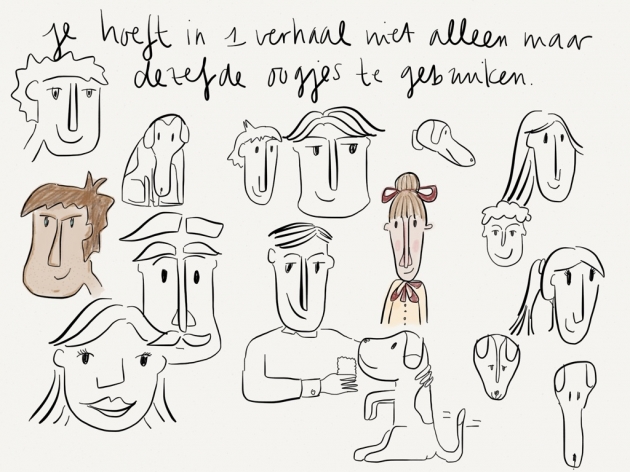 je hoeft in 1 verhaal niet alleen maar
dezefde oogjes te gebruiken.